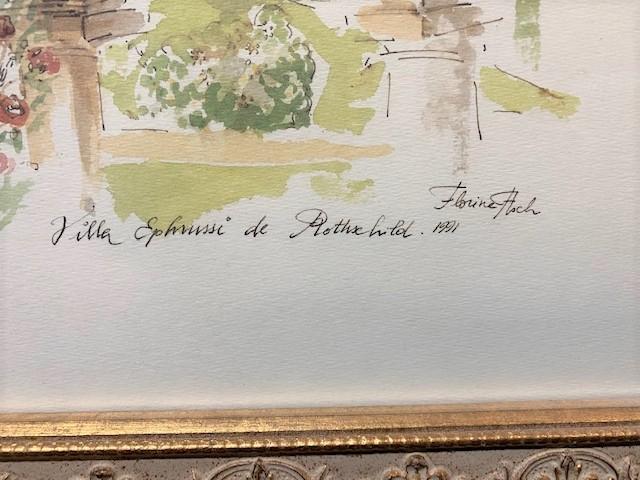 Villa Ephrussi de Rothschild. 1991
Florine Asch